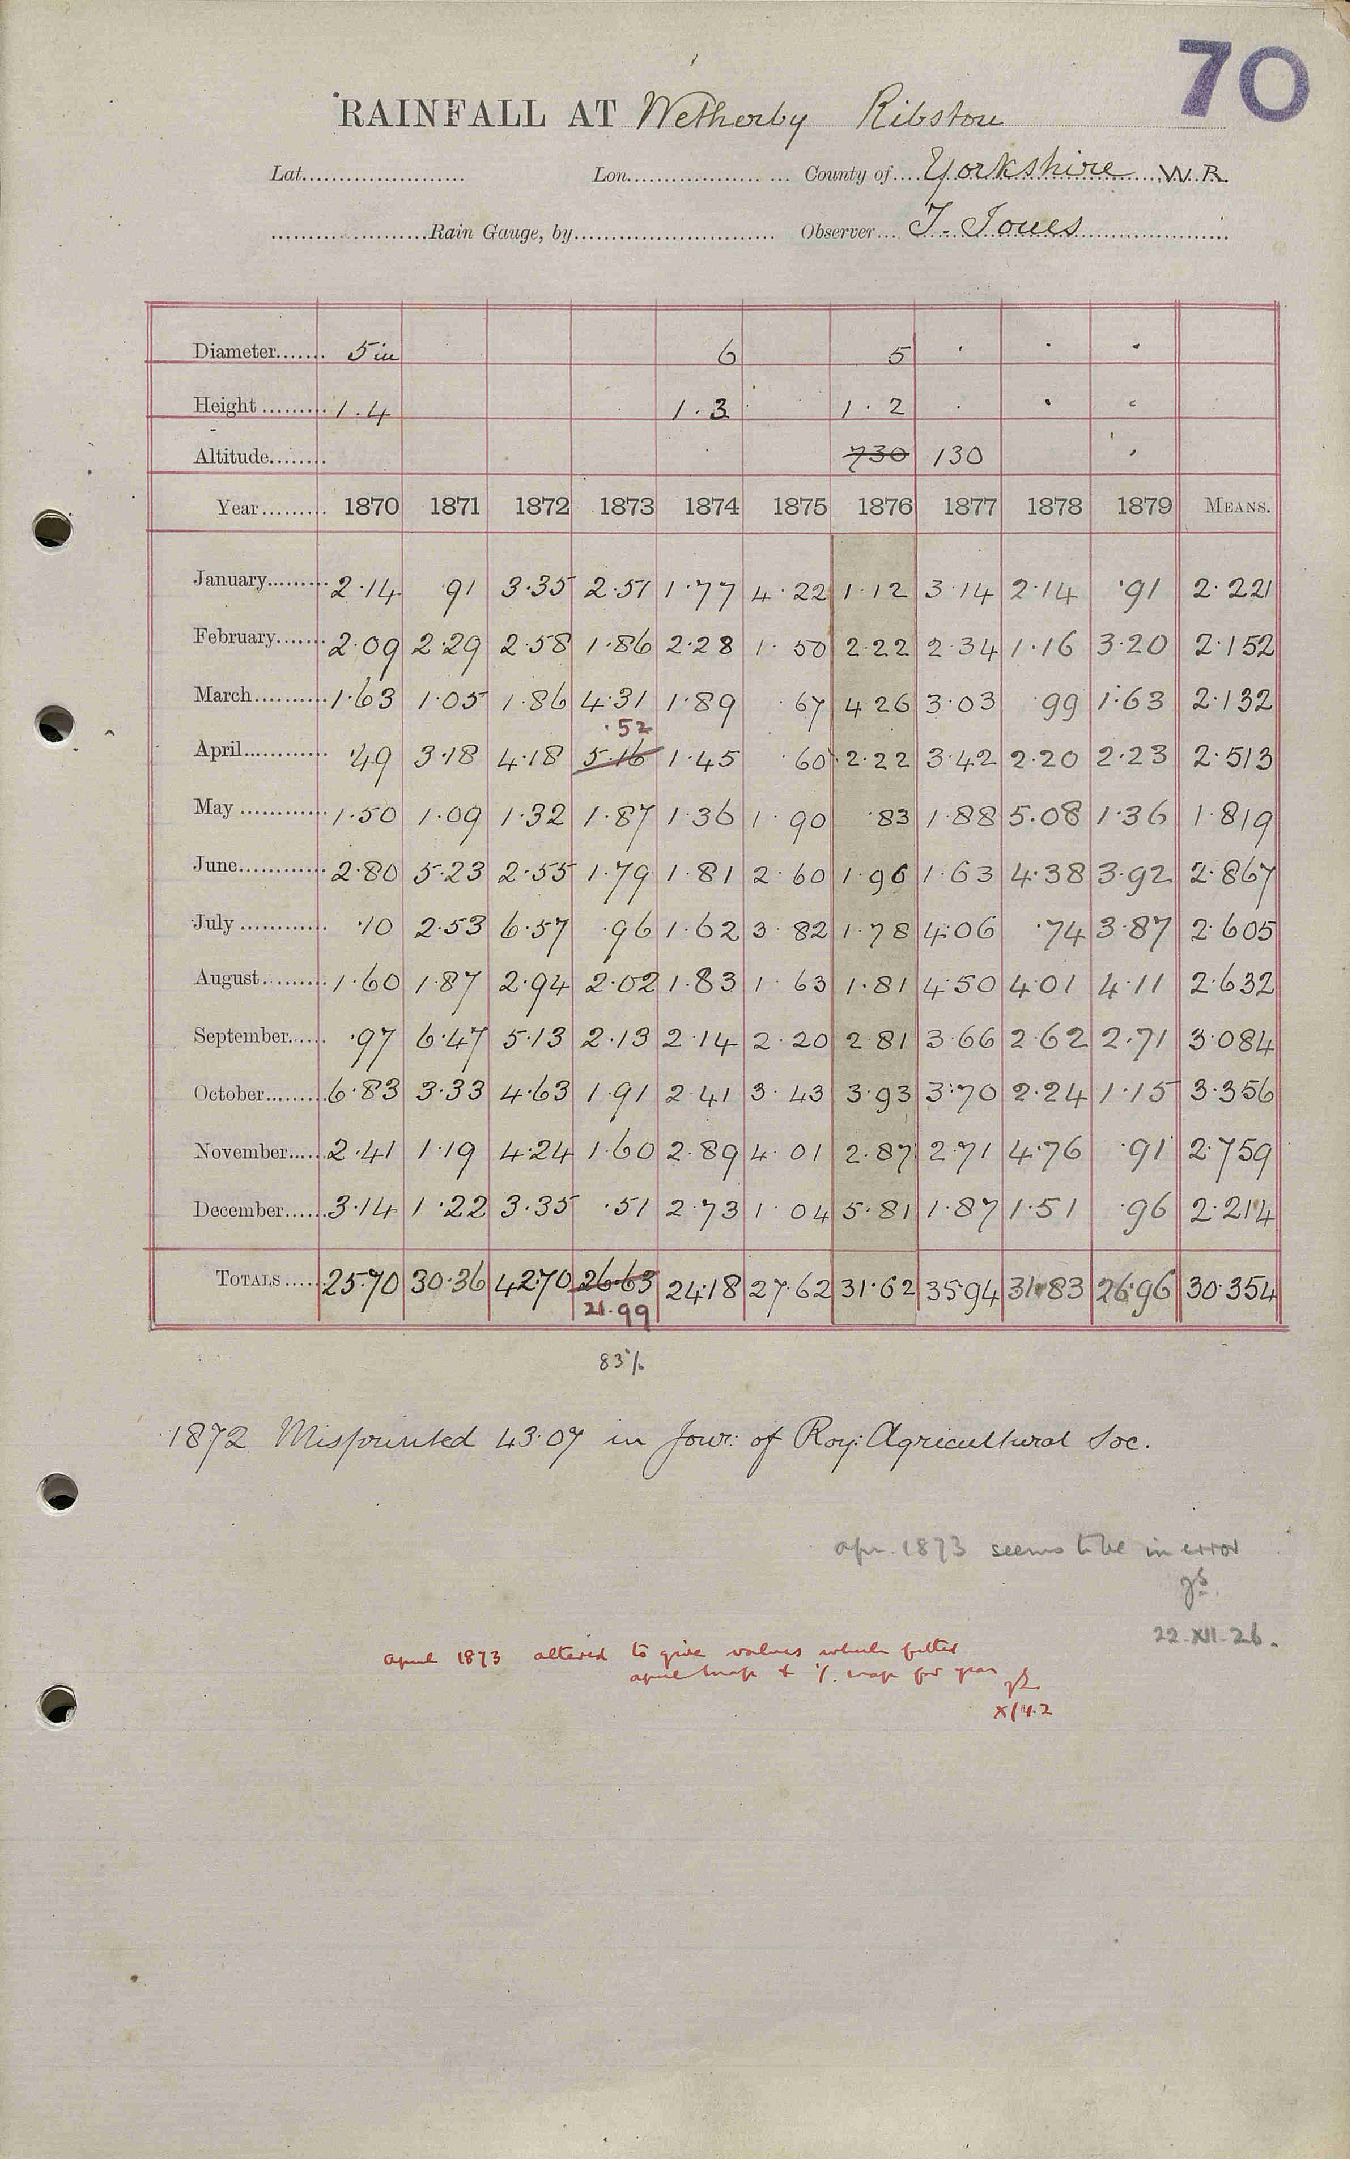 70
RAINFALL AT Wetherby Ribston
Lat. Lon. County of Yorkshire W.R.
Rain Gauge, by Observer T. Jones
Diameter 5 in 6 5
Height 1.4 1.3 1.2
Altitude 730 130
Year 1870 1871 1872 1873 1874 1875 1876 1877 1878 1879 MEANS.
January 2.14 .91 3.35 2.51 1.77 4.22 1.12 3.14 2.14 .91 2.221
February 2.09 2.29 2.58 1.86 2.28 1.50 2.22 2.34 1.16 3.20 2.152
March 1.63 1.05 1.86 4.31 1.89 .67 4.26 3.03 .99 1.63 2.132
.52
April .49 3.18 4.18 5.16 1.45 .60 2.22 3.42 2.20 2.23 2.513
May 1.50 1.09 1.32 1.87 1.36 1.90 .83 1.88 5.08 1.36 1.819
June 2.80 5.23 2.55 1.79 1.81 2.60 1.96 1.63 4.38 3.92 2.867
July .10 2.53 6.57 .96 1.62 3.82 1.78 4.06 .74 3.87 2.605
August 1.60 1.87 2.94 2.02 1.83 1.63 1.81 4.50 4.01 4.11 2.632
September .97 6.47 5.13 2.13 2.14 2.20 2.81 3.66 2.62 2.71 3.084
October 6.83 3.33 4.63 1.91 2.41 3.43 3.93 3.70 2.24 1.15 3.356
November 2.41 1.19 4.24 1.60 2.89 4.01 2.87 2.71 4.76 .91 2.759
December 3.14 1.22 3.35 .51 2.73 1.04 5.81 1.87 1.51 .96 2.214
TOTALS 25.70 30.36 42.70 26.63 24.18 27.62 31.62 35.94 31.83 26.96 30.354
21.99
83%
1872 Misprinted 43.07 in Jour: of Roy: Agricultural Soc.
Apr. 1873 seems to be in error
22.XII.26.
April 1873 altered to give values which fitted
April map & % map for year